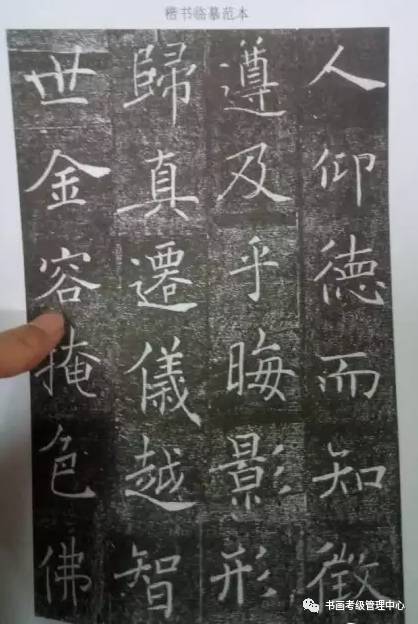 楷书临摹范本
人仰德而知徵
遵及乎晦影形
歸真遷儀越智
世金容掩色佛
书画考级管理中心